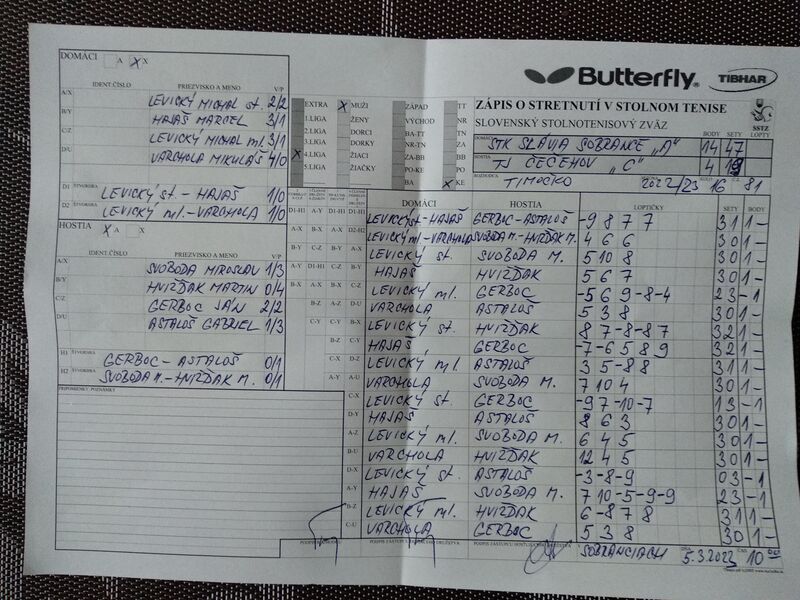 DOMÁCI A X X
Butterfly® TIBHAR
IDENT.ČÍSLO PRIEZVISKO A MENO V/P
A/X LEVICKÝ MICHAL st. 2/2
B/Y HAJAŠ MARCEL 3/1
C/Z LEVICKÝ MICHAL ml. 3/1
D/U VARCHOLA MIKULÁŠ 4/0
D1 ŠTVORHRA LEVICKÝ st. - HAJAŠ 1/0
D2 ŠTVORHRA LEVICKÝ ml. - VARCHOLA 1/0
EXTRA X MUŽI ZÁPAD TT
1.LIGA ŽENY VÝCHOD NR
2.LIGA DORCI BA-TT TN
3.LIGA DORKY NR-TN ZA
X 4.LIGA ŽIACI ZA-BB BB
5.LIGA ŽIAČKY PO
BA X KE
ZÁPIS O STRETNUTÍ V STOLNOM TENISE
SLOVENSKÝ STOLNOTENISOVÝ ZVÄZ
SSTZ
BODY SETY LOPTY
DOMÁCI STK SLÁVIA SOBRANCE „A" 14 47
HOSTIA TJ ČEČEHOV „C" 4 19
ROZHODCA TIMOČKO 2022/23 16 81
HOSTIA X A X
IDENT.ČÍSLO PRIEZVISKO A MENO V/P
A/X SVOBODA MIROSLAV 1/3
B/Y HVIŽĎAK MARTIN 0/4
C/Z GERBOC JÁN 2/2
D/U ASTALOŠ GABRIEL 1/3
H1 ŠTVORHRA GERBOC - ASTALOŠ 0/1
H2 ŠTVORHRA SVOBODA M. - HVIŽĎAK M. 0/1
PRIPOMIENKY, POZNÁMKY
DOMÁCI HOSTIA LOPTIČKY SETY BODY
D1-H1 A-Y D1-H1 LEVICKÝ st. - HAJAŠ GERBOC - ASTALOŠ -9 8 7 7 3 1 1 -
A-X B-X D2-H2 LEVICKÝ ml. - VARCHOLA SVOBODA M. - HVIŽĎAK M. 4 6 6 3 0 1 -
B-Y C-Z A-X LEVICKÝ st. SVOBODA M. 5 10 8 3 0 1 -
A-Y D1-H1 C-Z B-Y HAJAŠ HVIŽĎAK 5 6 7 3 0 1 -
B-X A-X C-Z LEVICKÝ ml. GERBOC -5 6 9 -8 -4 2 3 - 1
B-Z A-Z D-U VARCHOLA ASTALOŠ 5 3 8 3 0 1 -
C-Y A-Y LEVICKÝ st. HVIŽĎAK 8 7 -8 -8 7 3 2 1 -
B-Z B-Z HAJAŠ GERBOC -7 -6 5 8 9 3 2 1 -
C-X C-U LEVICKÝ ml. ASTALOŠ 3 5 -8 8 3 1 1 -
A-Y D-X VARCHOLA SVOBODA M. 7 10 4 3 0 1 -
C-X LEVICKÝ st. GERBOC -9 7 -10 -7 1 3 - 1
D-Y HAJAŠ ASTALOŠ 8 6 3 3 0 1 -
A-Z LEVICKÝ ml. SVOBODA M. 6 4 5 3 0 1 -
B-U VARCHOLA HVIŽĎAK 12 4 5 3 0 1 -
D-X LEVICKÝ st. ASTALOŠ -3 -8 -9 0 3 - 1
A-Y HAJAŠ SVOBODA M. 7 10 -5 -9 -9 2 3 - 1
B-Z LEVICKÝ ml. HVIŽĎAK 6 -8 7 8 3 1 1 -
C-U VARCHOLA GERBOC 5 3 8 3 0 1 -
SOBRANCIACH 5.3.2023 10 00